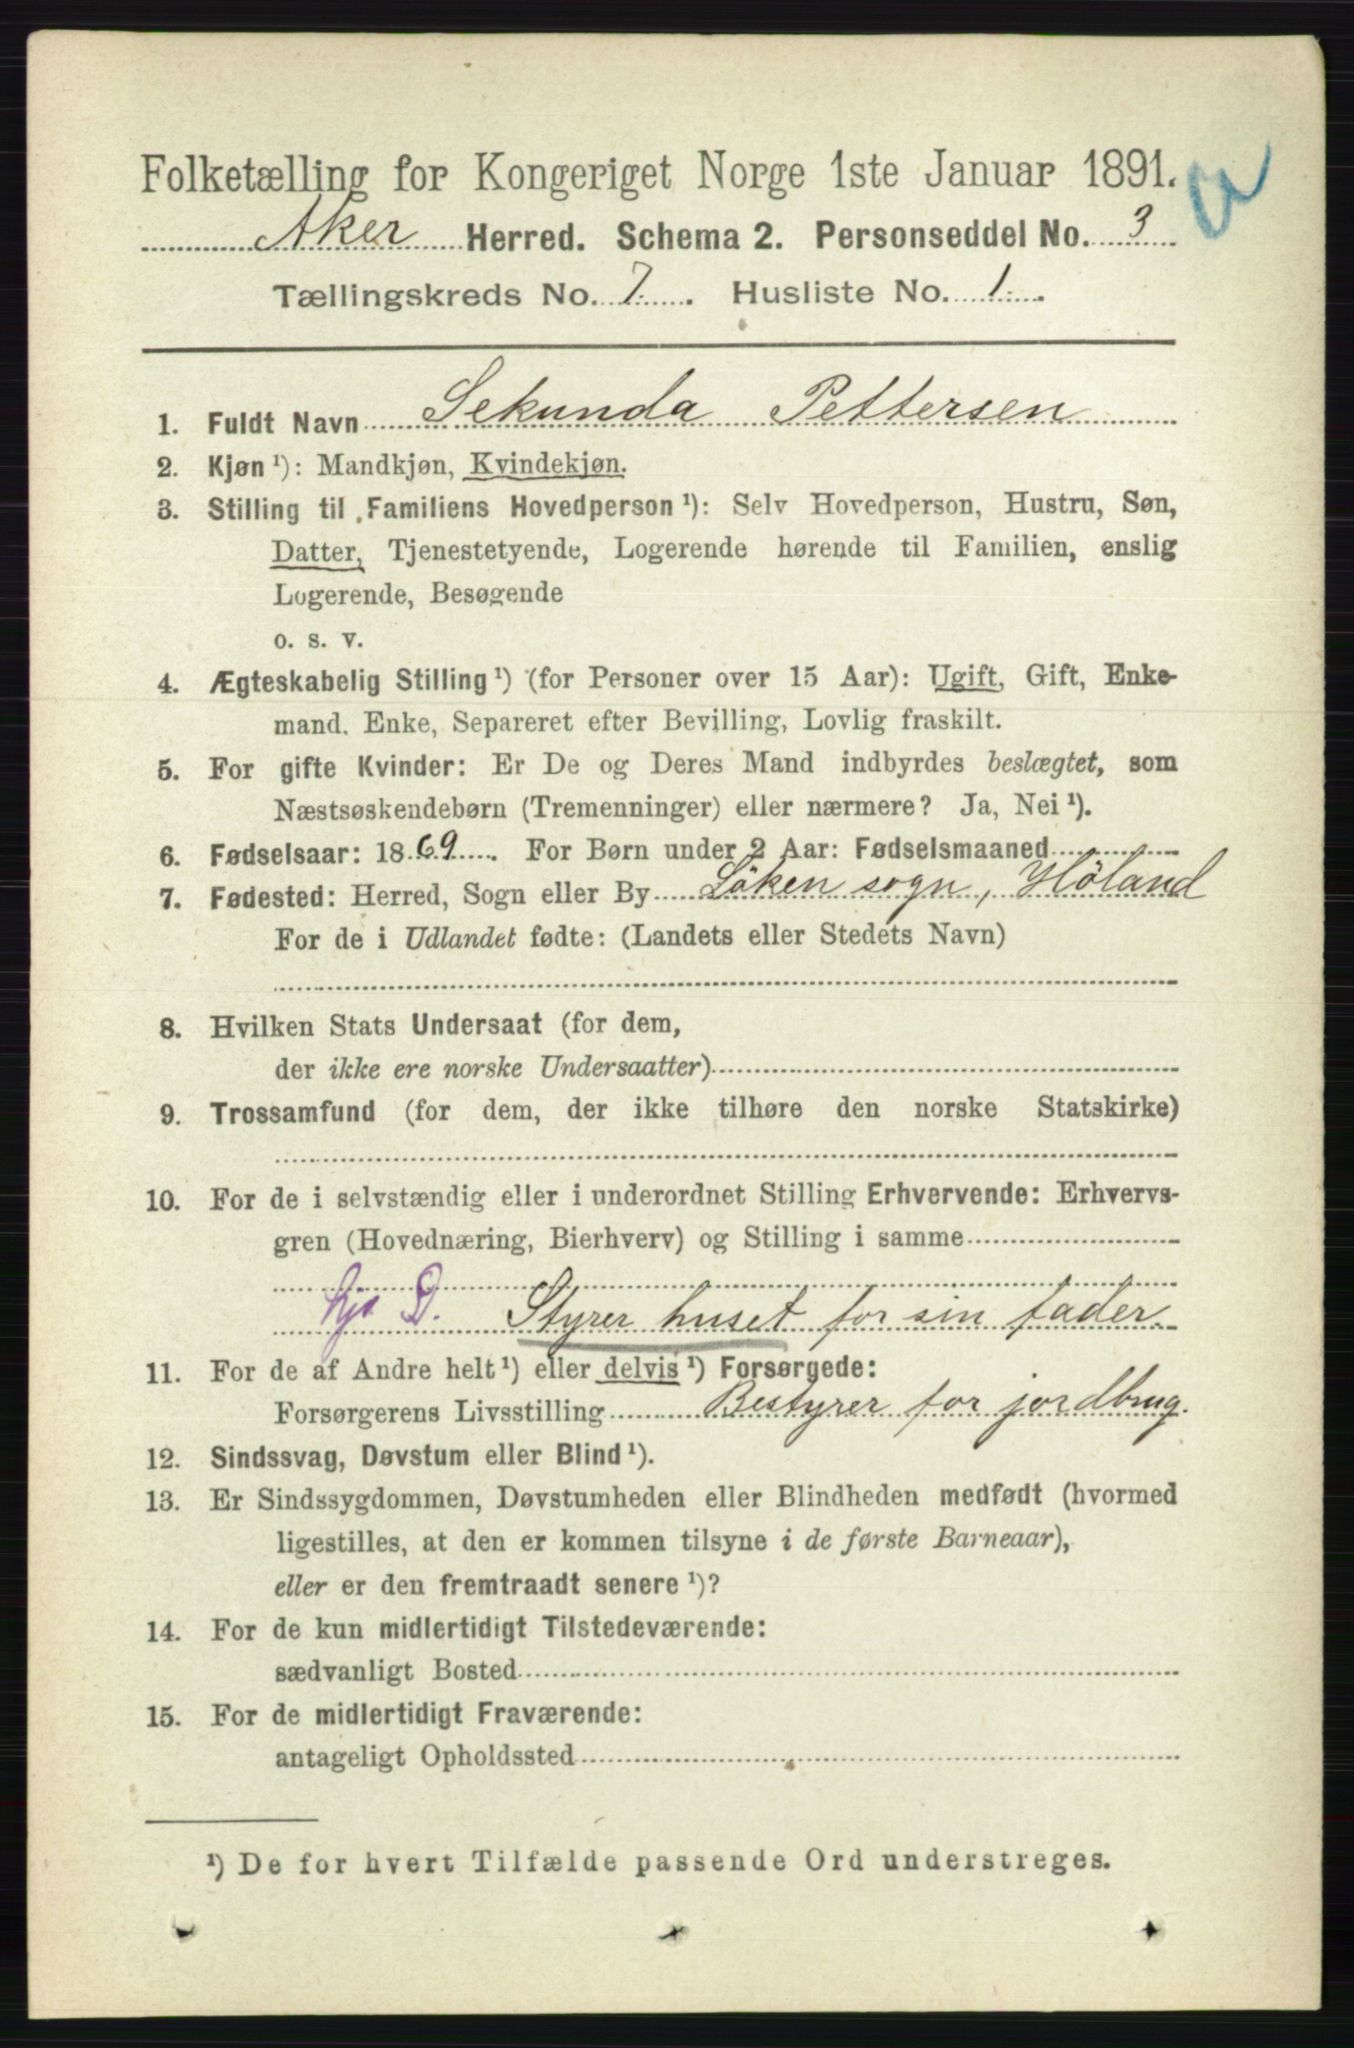 Folketælling for Kongeriget Norge 1ste Januar 1891.
Aker Herred. Schema 2. Personseddel No. 3
Tællingskreds No. 7. Husliste No. 1.
1. Fuldt Navn Sekunda Pettersen
2. Kjøn ¹): Mandkjøn, Kvindekjøn.
3. Stilling til Familiens Hovedperson ¹): Selv Hovedperson, Hustru, Søn,
Datter, Tjenestetyende, Logerende hørende til Familien, enslig
Logerende, Besøgende
o. s. v.
4. Ægteskabelig Stilling ¹) (for Personer over 15 Aar): Ugift, Gift, Enke-
mand, Enke, Separeret efter Bevilling, Lovlig fraskilt.
5. For gifte Kvinder: Er De og Deres Mand indbyrdes beslægtet, som
Næstsøskendebørn (Tremenninger) eller nærmere? Ja, Nei ¹).
6. Fødselsaar: 1869. For Børn under 2 Aar: Fødselsmaaned
7. Fødested: Herred, Sogn eller By Löken sogn, Höland
For de i Udlandet fødte: (Landets eller Stedets Navn)
8. Hvilken Stats Undersaat (for dem,
der ikke ere norske Undersaatter)
9. Trossamfund (for dem, der ikke tilhøre den norske Statskirke)
10. For de i selvstændig eller i underordnet Stilling Erhvervende: Erhvervs-
gren (Hovednæring, Bierhverv) og Stilling i samme
hjo D. Styrer huset for sin fader.
11. For de af Andre helt ¹) eller delvis ¹) Forsørgede:
Forsørgerens Livsstilling Bestyrer for jordbrug.
12. Sindssvag, Døvstum eller Blind ¹).
13. Er Sindssygdommen, Døvstumheden eller Blindheden medfødt (hvormed
ligestilles, at den er kommen tilsyne i de første Barneaar),
eller er den fremtraadt senere ¹)?
14. For de kun midlertidigt Tilstedeværende:
sædvanligt Bosted
15. For de midlertidigt Fraværende:
antageligt Opholdssted
¹) De for hvert Tilfælde passende Ord understreges.